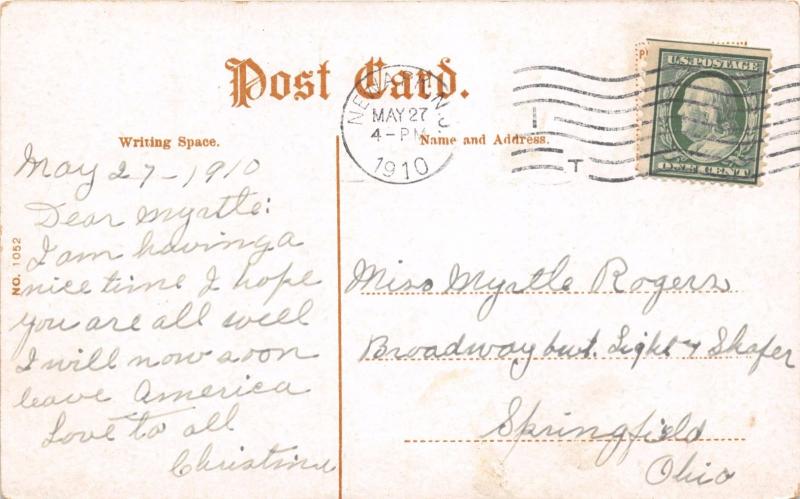 Post Card.
NEWARK, N.J.
MAY 27
4-PM
1910
I
T
U.S. POSTAGE
ONE CENT
Writing Space.
Name and Address.
NO. 1052
May 27-1910
Dear Myrtle:
I am having a
nice time I hope
you are all well
I will now soon
leave America
Love to all
Christine
Miss Myrtle Rogers
Broadway but. Light & Shafer
Springfield
Ohio